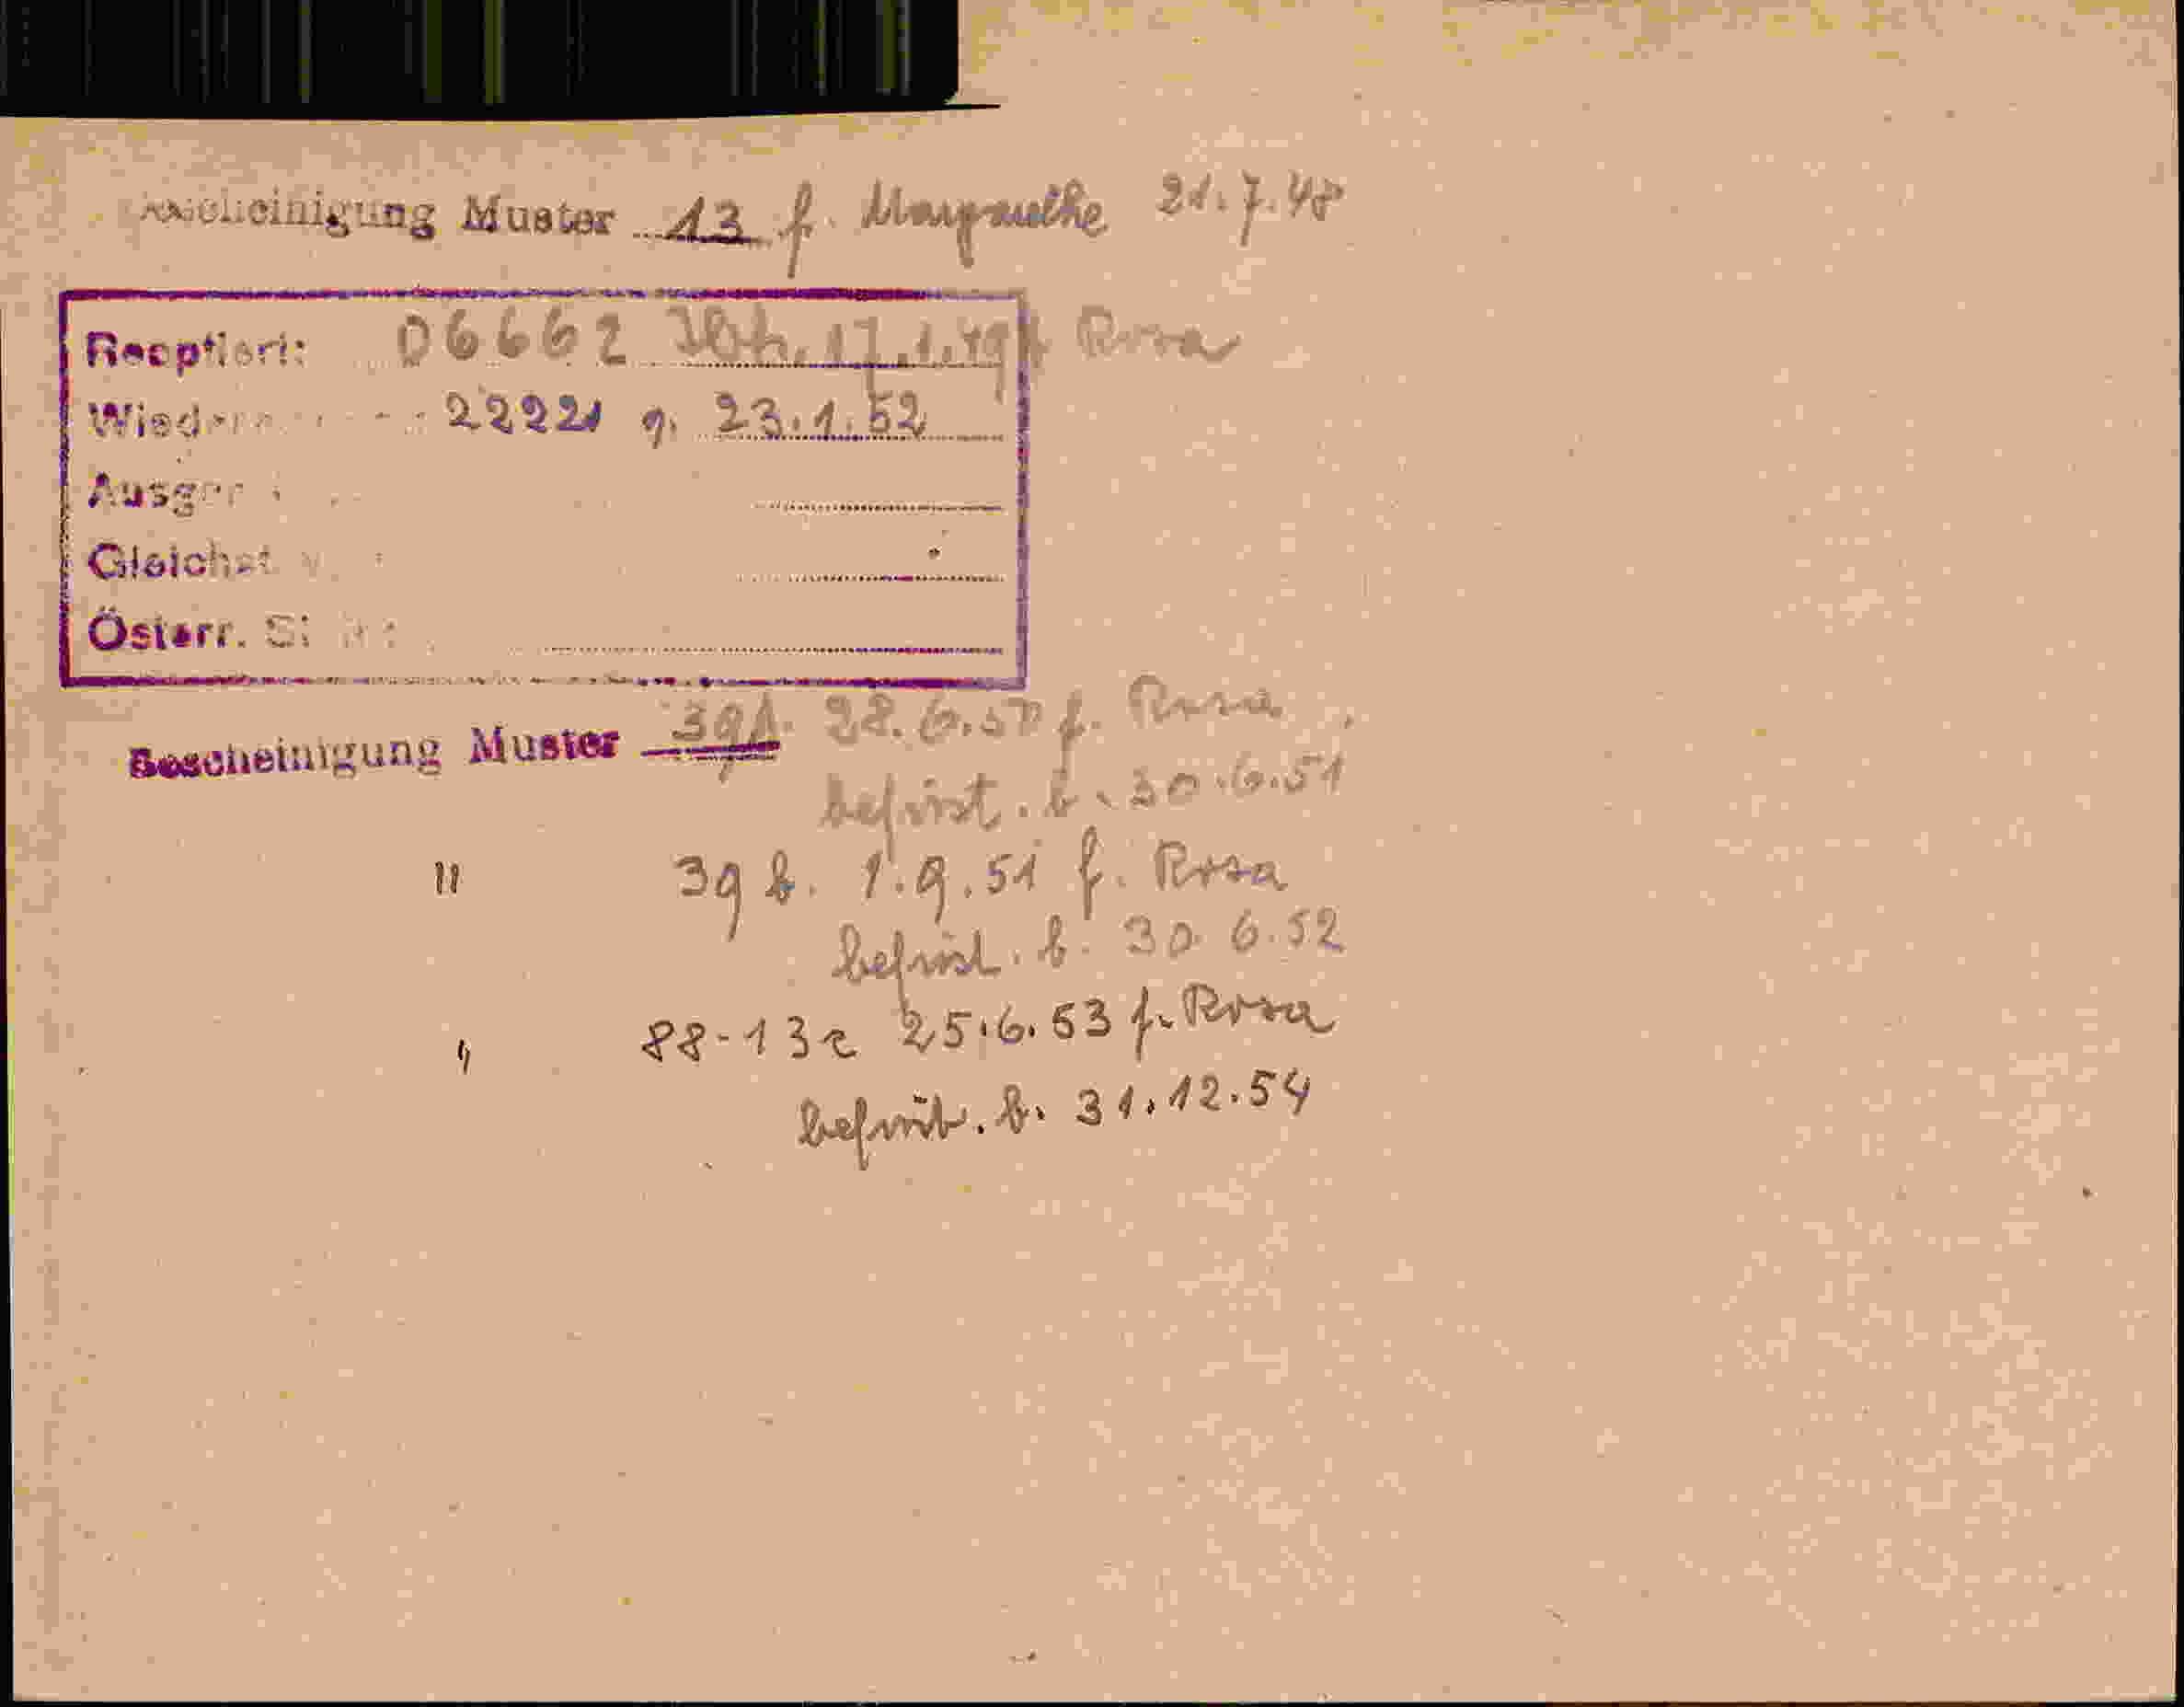 Bescheinigung Muster 13 f. Margarethe 21.7.48
Reoptiert: 06662 17.1.49 f. Rosa
22221 g. 23.1.52
Österr.
Bescheinigung Muster 39 f. 28.6.50 f. Rosa
befrist. b. 30.6.51
" 39 b. 1.9.51 f. Rosa
befrist. b. 30.6.52
" 88-13c 25.6.53 f. Rosa
befrist. b. 31.12.54